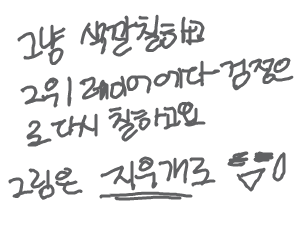 그냥 색깔칠하고
그위 레이어에다 검정은
로 다시 칠하고요
그림은 지우개로